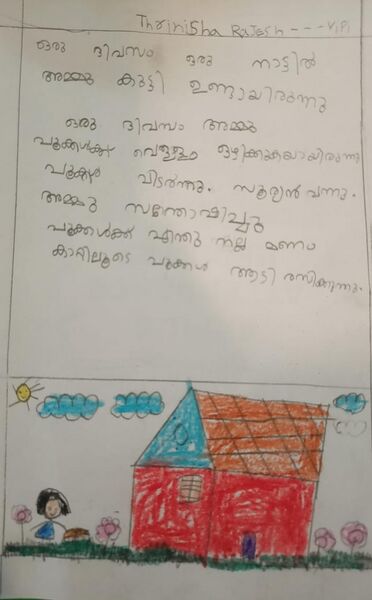 Thrinisha Rajesh - - - VI PI
ഒരു ദിവസം ഒരു നാട്ടിൽ
അമ്മു കുട്ടി ഉണ്ടായിരുന്നു
ഒരു ദിവസം അമ്മു
പൂക്കൾക്ക് വെള്ളം ഒഴിക്കുകയായിരുന്നു
പൂക്കൾ വിടർന്നു. സൂര്യൻ വന്നു.
അമ്മു സന്തോഷിച്ചു
പൂക്കൾക്ക് എന്തു നല്ല മണം
കാറ്റിലൂടെ പൂക്കൾ ആടി രസിക്കുന്നു.